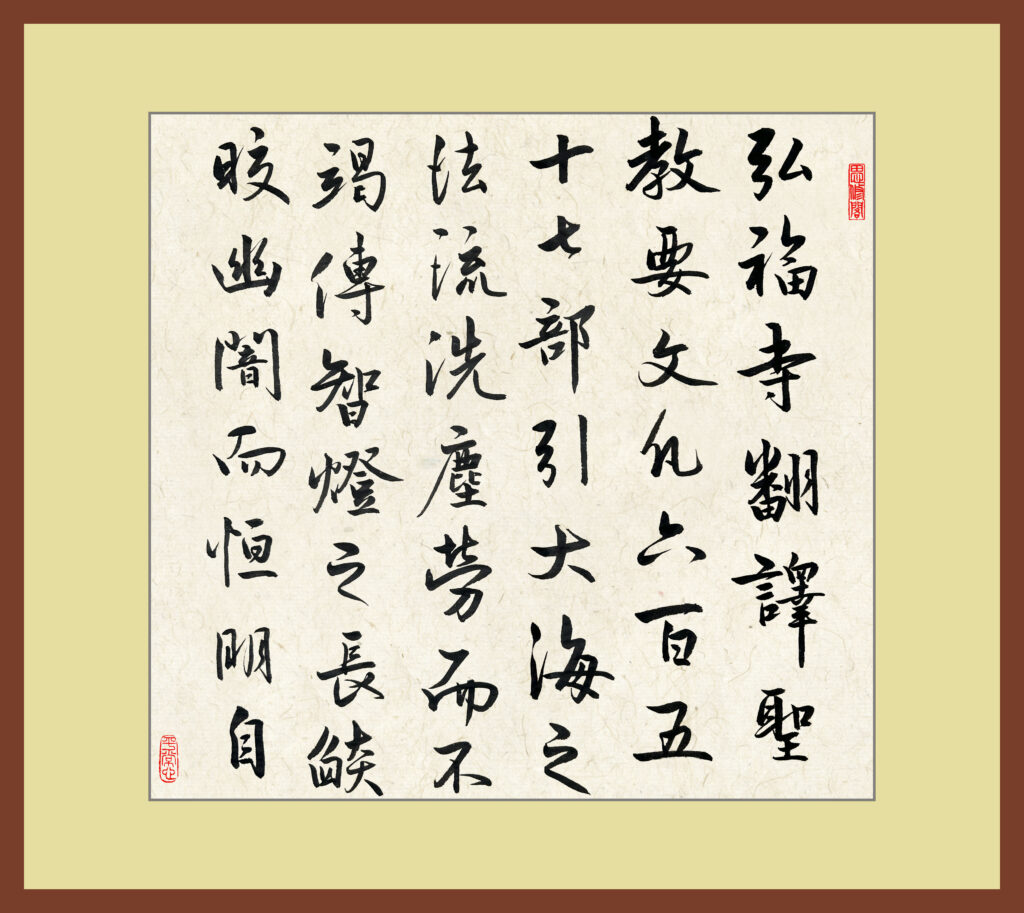 思修閣
弘福寺翻譯聖
教要文凡六百五
十七部引大海之
法流洗塵勞而不
竭傳智燈之長燄
皎幽闇而恒明自
平常心